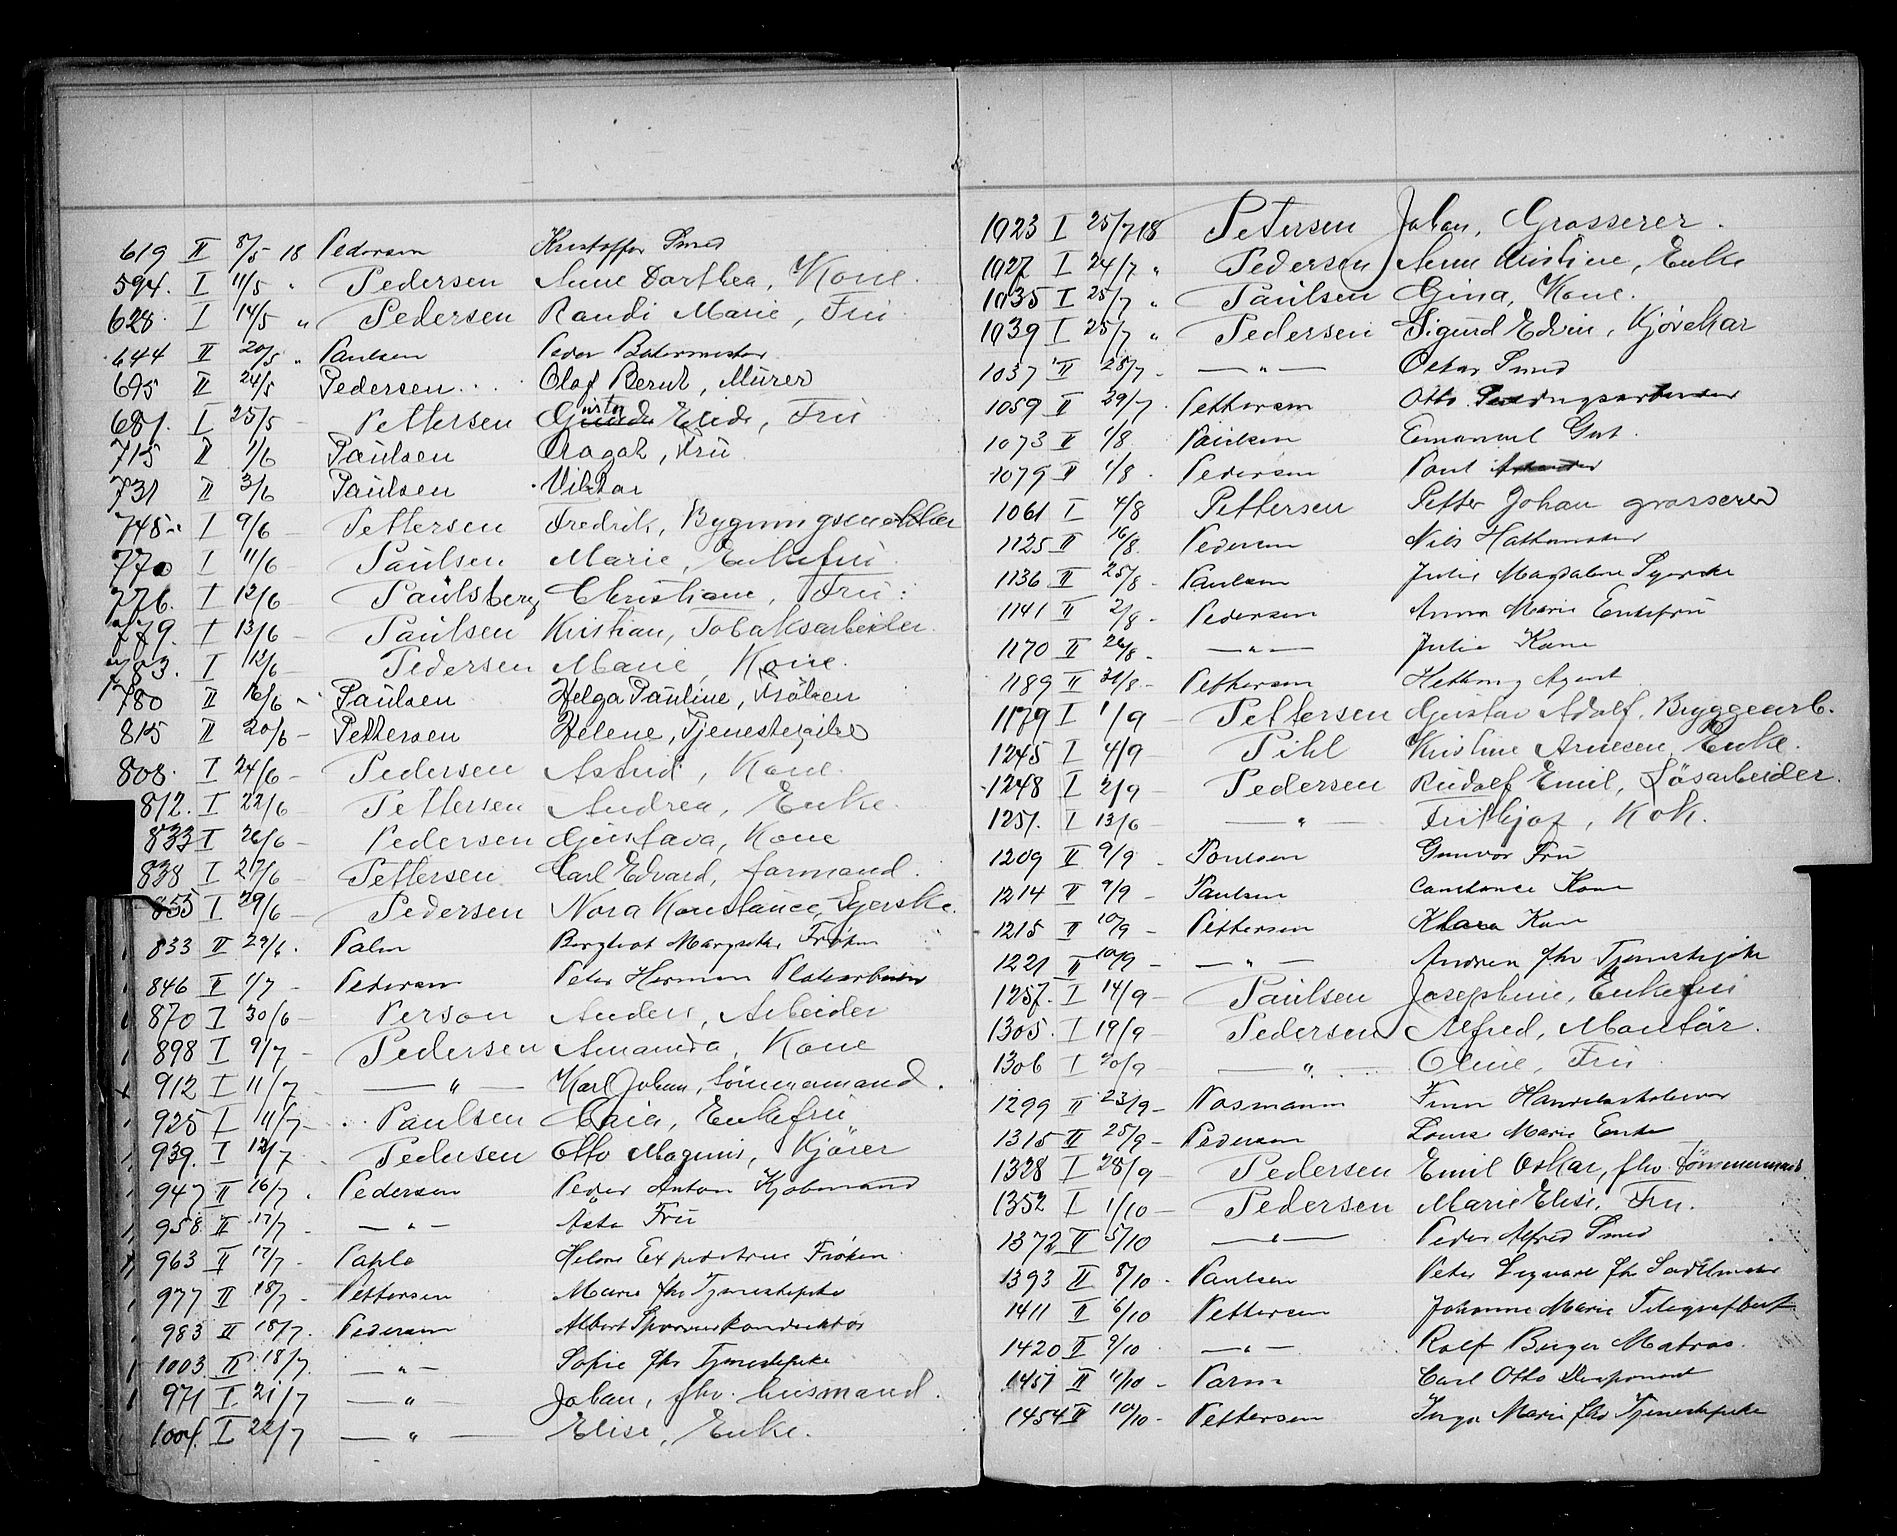 619 II 8/5 18 Pedersen Kristoffer Smed
594. I 11/5 " Pedersen Anne Dorthea, Kone.
628. I 14/5 " Pedersen Randi Marie, Fru
644 II 20/5 " Paulsen Peder
695 II 24/5 Pedersen Olaf Bernt, Murer
681. I 25/5 - Pettersen Elide, Fru
715 II 1/6 Paulsen Aagot, Fru
731 II 3/6 Paulsen Viktor
748 I 9/6 - Pettersen Fredrik,
770 I 11/6 - Paulsen Marie, Enkefru
776. I 12/6 - Paulsberg Christiane, Fru
779. I 13/6 - Paulsen Kristian, Tobaksarbeider.
783. I 13/6 - Pedersen Marie, Kone.
780 II 16/6 - Paulsen Helga Pauline, Frøken
815 II 20/6 - Pettersen Helene, Tjenestepike
808. I 24/6 - Pedersen Astrid, Kone.
812. I 22/6 Pettersen Andrea, Enke.
833 I 26/6 - Pedersen Gustava, Kone
838 I 27/6 - Pettersen Carl Edvard, Formand.
855 I 29/6 - Pedersen Nora Konstance, Syerske.
833 II 29/6. Palm Bergliot Margrethe Frøken
846 II 1/7 - Petersen Peter Herman
870 I 30/6 - Person Anders, Arbeider
898 I 9/7 - Pedersen Amanda, Kone
912 I 11/7 — " — Karl Johan, Tømmermand.
925 I 11/7 - Paulsen Maia, Enkefru
939. I 12/7 Pedersen Otto Magnus, Kjører
947 II 16/7 Pedersen Peder Anton Kjøbmand
958 II 17/7 - — " — Asta Fru
963 II 17/7 - Pahle Helene Expeditrice Frøken
977 II 18/7 - Pettersen Marie fhv Tjenestepike
983 II 18/7. Pedersen Albert Sporveiskonduktør
1003 II 18/7 — " — Sofie fhv Tjenestepike
971 I. 21/7 — " — Johan, fhv. Husmand.
1001. I 22/7 — " — Elise, Enke.
1023 I 25/7 18 Petersen Johan, Grosserer.
1027 I 24/7 " Pedersen Anne Kristine, Enke
1035 I 25/7 " Paulsen Gina, Kone.
1039 I 25/7 " Pedersen Sigurd Edvin,
1037 II 28/7 - — " — Oskar Smed
1059 II 29/7. Pettersen Otto
1073 II 1/8 Paulsen Emanuel
1079 II 1/8 . Pedersen Paul
1061 I 4/8 Pettersen Petter Johan grosserer
1125 II 16/8. Pedersen Nils Hattemaker
1136 II 25/8 - Paulsen Julie Magdalene Syerske
1141 II 2/8 - Pedersen Anna Marie Enkefru
1170 II 26/8 - — " — Julie Kone
1189 II 31/8 - Pettersen Agent
1179 I 1/9 - Pettersen Gustav Adolf, Bryggearb.
1245 I 4/9 - Pihl Kristine Arnesen, Enke.
1248 I 2/9 - Pedersen Rudolf Emil, Løsarbeider.
1251. I 13/6 - — " — Fritkjof, Kok.
1209 II 9/9 - Poulsen Gunvor Fru
1214 II 9/9 - Paulsen Constance Kone
1215 II 10/9 - Pettersen Klara Kone
1221 II 10/9 - — " — Andrea fhv Tjenestepike
1257. I 14/9 - Paulsen Josephine, Enkefru
1305. I 19/9 - Pedersen Alfred, Montør.
1306 I 20/9 — " — Oline, Fru
1299 II 23/9 - Posmann Finn Handelsskoleelev
1315 II 25/9 - Pedersen Louise Marie Enke
1328 I 28/9 - Pedersen Emil Oskar, fhv. Tømmermand.
1352 I 1/10 - Pedersen Marie Elise, Fru.
1372 II 5/10 — " — Peder Alfred Smed
1393 II 8/10 - Paulsen Peter Sigvart fhv Sadelmaker
1411 II 6/10 Pettersen Johanne Marie Telegrafbest
1420 II 9/10 — " — Rolf Birger Matros.
1451 II 11/10 - Parm Carl Otto Disponent
1454 II 10/10 - Pettersen Inga Marie fhv Tjenestepike